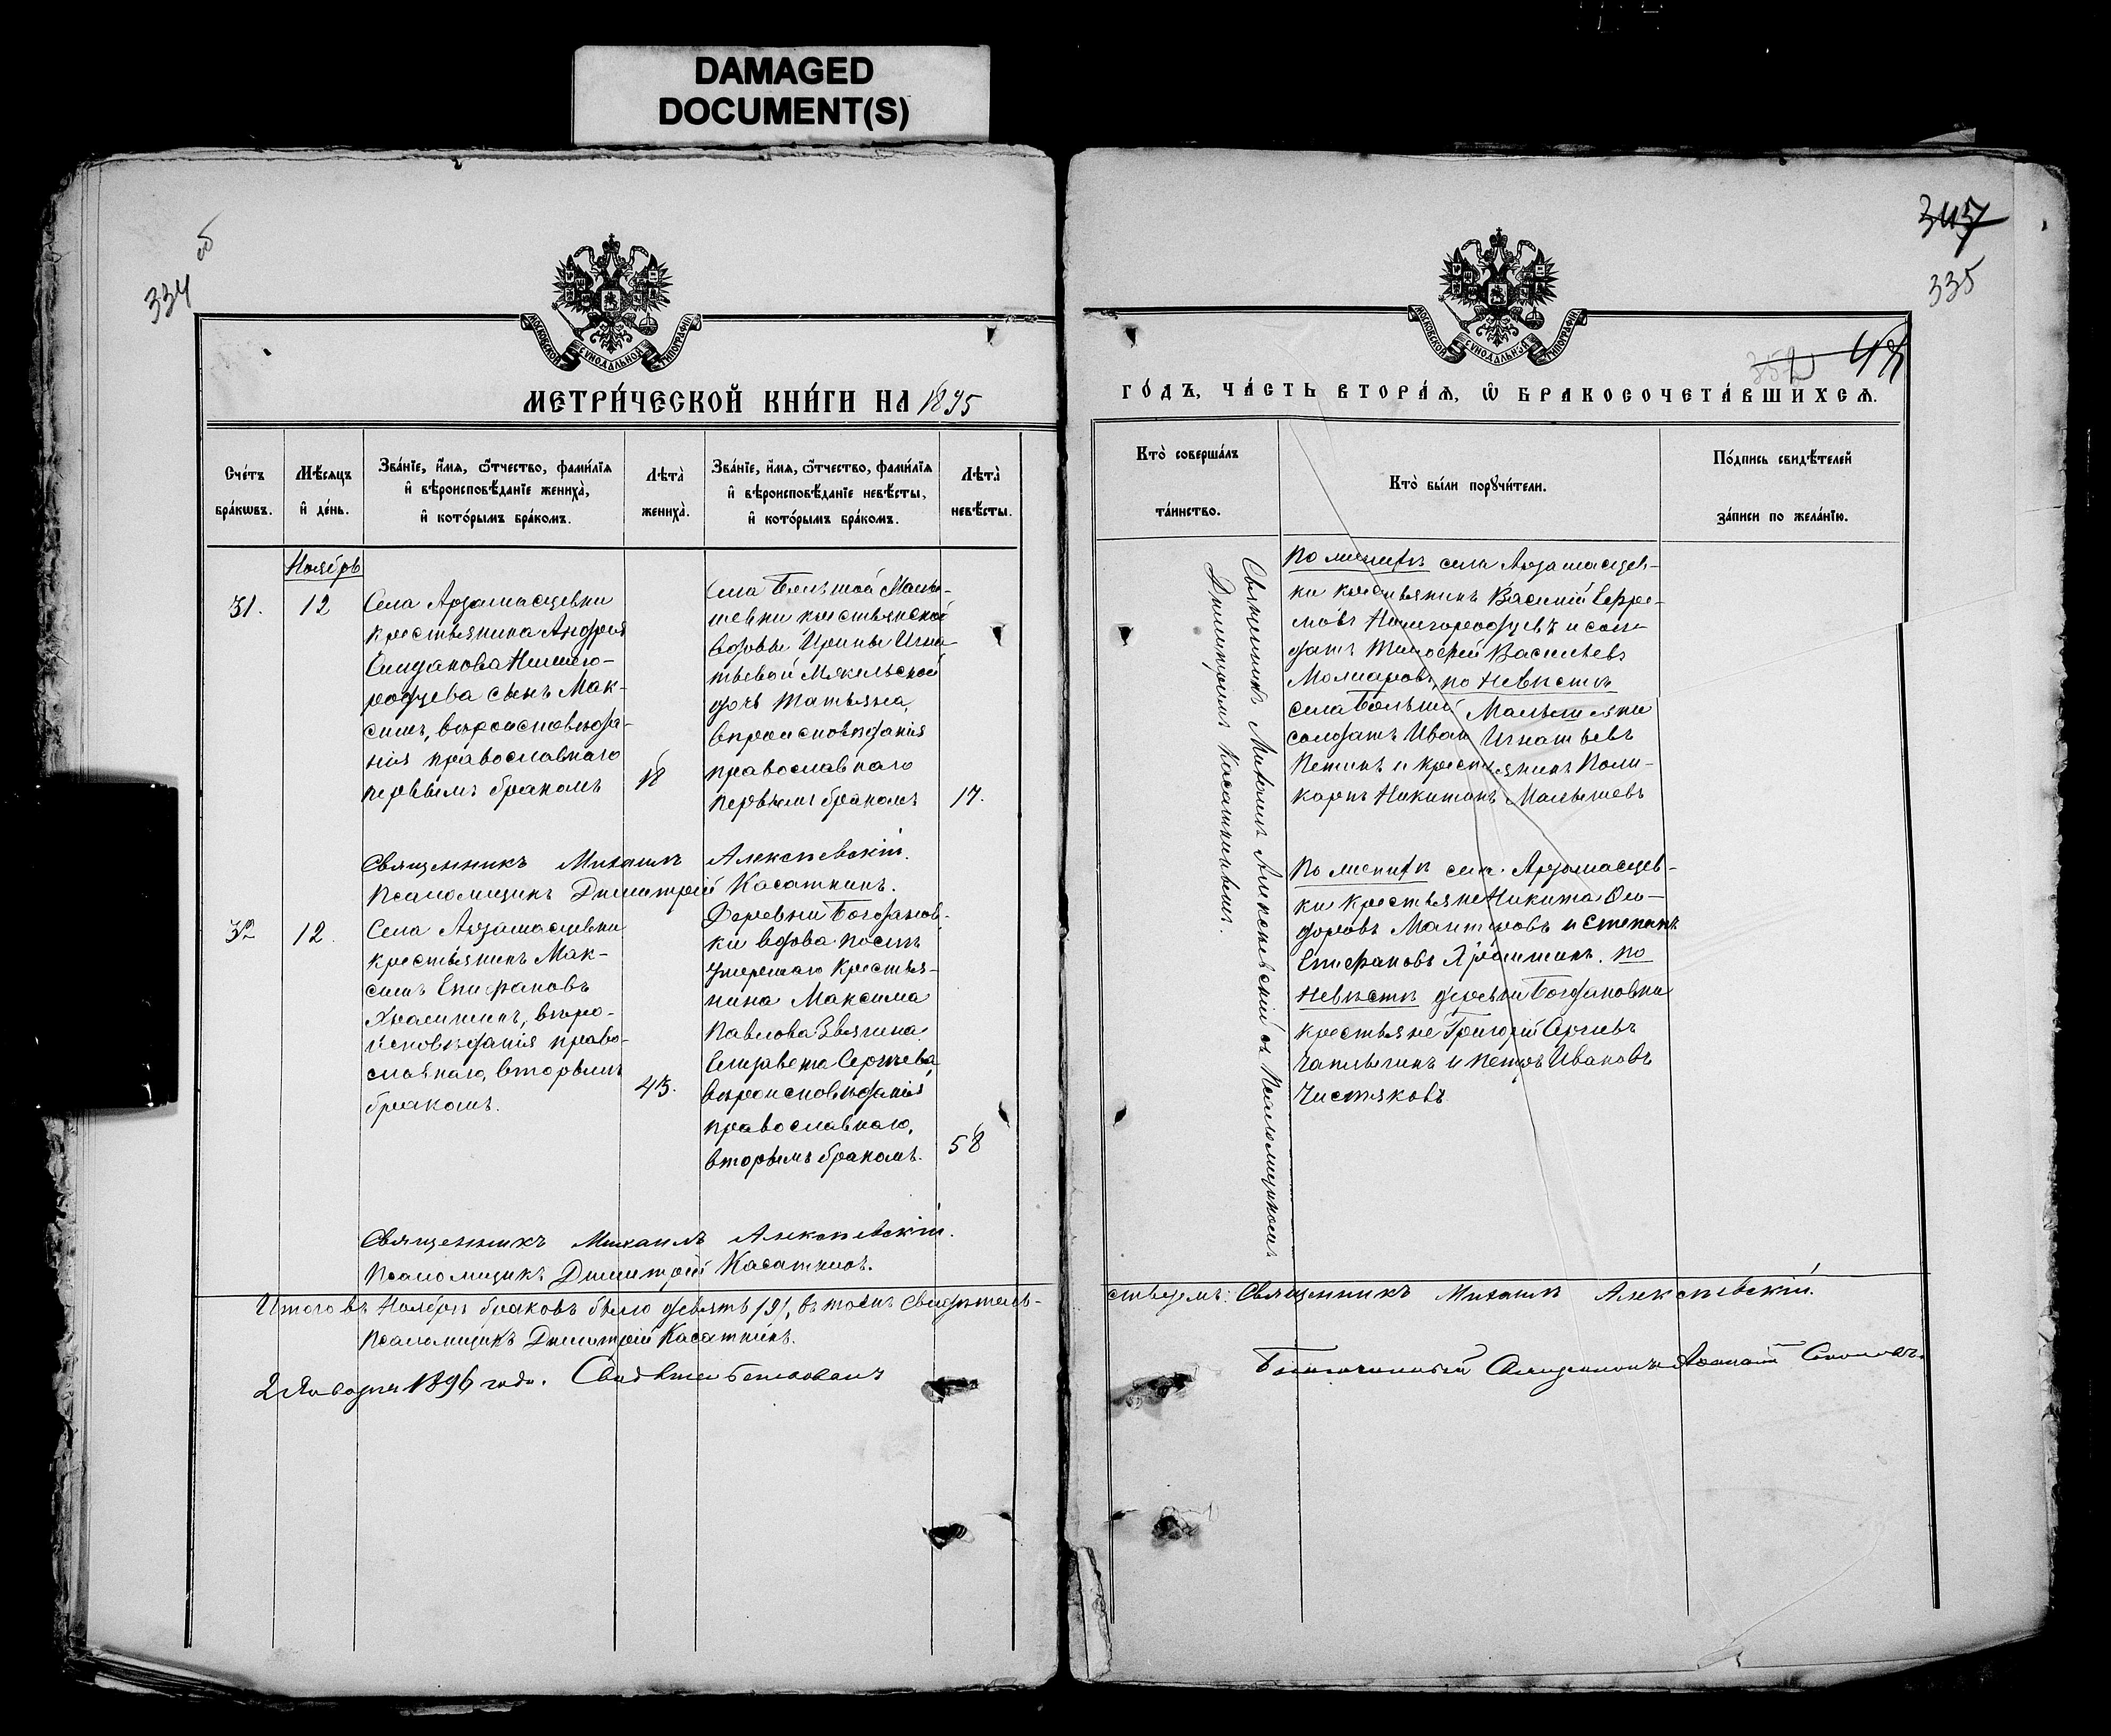 DAMAGED
DOCUMENT(S)
334 об
МОСКОВСКОЙ СѴНОДАЛЬНОЙ ТИПОГРАФІИ
МЕТРИ́ЧЕСКОЙ КНИ́ГИ НА 1895
Сче́тъ бра́кωвъ.
Мѣ́сяцъ и҆ де́нь.
Зва́нїе, и҆́мѧ, ѻ҆́тчество, фами́лїѧ
и҆ вѣроисповѣ́данїе жениха̀,
и҆ кото́рымъ бра́комъ.
Лѣта̀ жениха̀.
Зва́нїе, и҆́мѧ, ѻ҆́тчество, фами́лїѧ
и҆ вѣроисповѣ́данїе невѣ́сты,
и҆ кото́рымъ бра́комъ.
Лѣта̀ невѣ́сты.
Ноябрь
31.
12
Села Арзамасцевки
крестьянина Андрея
Нижего-
родцева сынъ Мак-
симъ, вѣроисповѣда-
нія православнаго
первымъ бракомъ
18
Села Большой Малы-
шевки крестьянской
вдовы Ирины Игна-
тьевой
дочь Татьяна,
вѣроисповѣданія
православнаго
первымъ бракомъ
17.
Священникъ Михаилъ Алексѣевскій.
Псаломщикъ Димитрій Касаткинъ.
32
12.
Села Арзамасцевки
крестьянинъ Мак-
симъ Епифановъ
вѣро-
исповѣданія право-
славнаго, вторымъ
бракомъ.
45.
Деревни Богдановки
вдова послѣ
умершаго крестья-
нина Максима
Павлова Звягина
Елизавета Сергѣева
вѣроисповѣданія
православнаго,
вторымъ бракомъ.
58
Священникъ Михаилъ Алексѣевскій.
Псаломщикъ Димитрій Касаткинъ.
Итого въ Ноябрѣ браковъ было девять /9/, въ томъ свидѣтель-
Псаломщикъ Димитрій Касаткинъ.
2 Января 1896 года.
345
335
МОСКОВСКОЙ СѴНОДАЛЬНОЙ ТИПОГРАФІИ
ГО́ДЪ, ЧА́СТЬ ВТОРА́Ѧ, Ѡ҆ БРАКОСОЧЕТА́ВШИХСѦ.
Кто̀ соверша́лъ та́инство.
Кто̀ бы́ли порꙋчи́тели.
По́дпись свидѣ́телей за́писи по жела́нїю.
Священникъ Михаилъ Алексѣевскій съ Псаломщикомъ
Димитріемъ Касаткинымъ.
По женихѣ села Арзамасцев-
ки крестьянинъ Василій Ефре-
мовъ Нижегородцевъ и сол-
датъ Тимофей Васильевъ
по невѣстѣ
села Большой Малышевки
солдатъ Иванъ Игнатьевъ
и крестьянинъ Поли-
карпъ Никитинъ Малышевъ
По женихѣ села Арзамасцев-
ки крестьяне Никита Ѳео-
доровъ и Степанъ
Епифановъ по
невѣстѣ деревни Богдановки
крестьяне Григорій
Чаплыгинъ и Петръ Ивановъ
Чистяковъ
ствуемъ: Священникъ Михаилъ Алексѣевскій.
Благочинный Священникъ